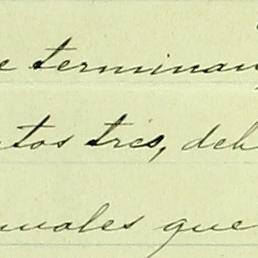 e terminan
ntos tres, deb
nuales que